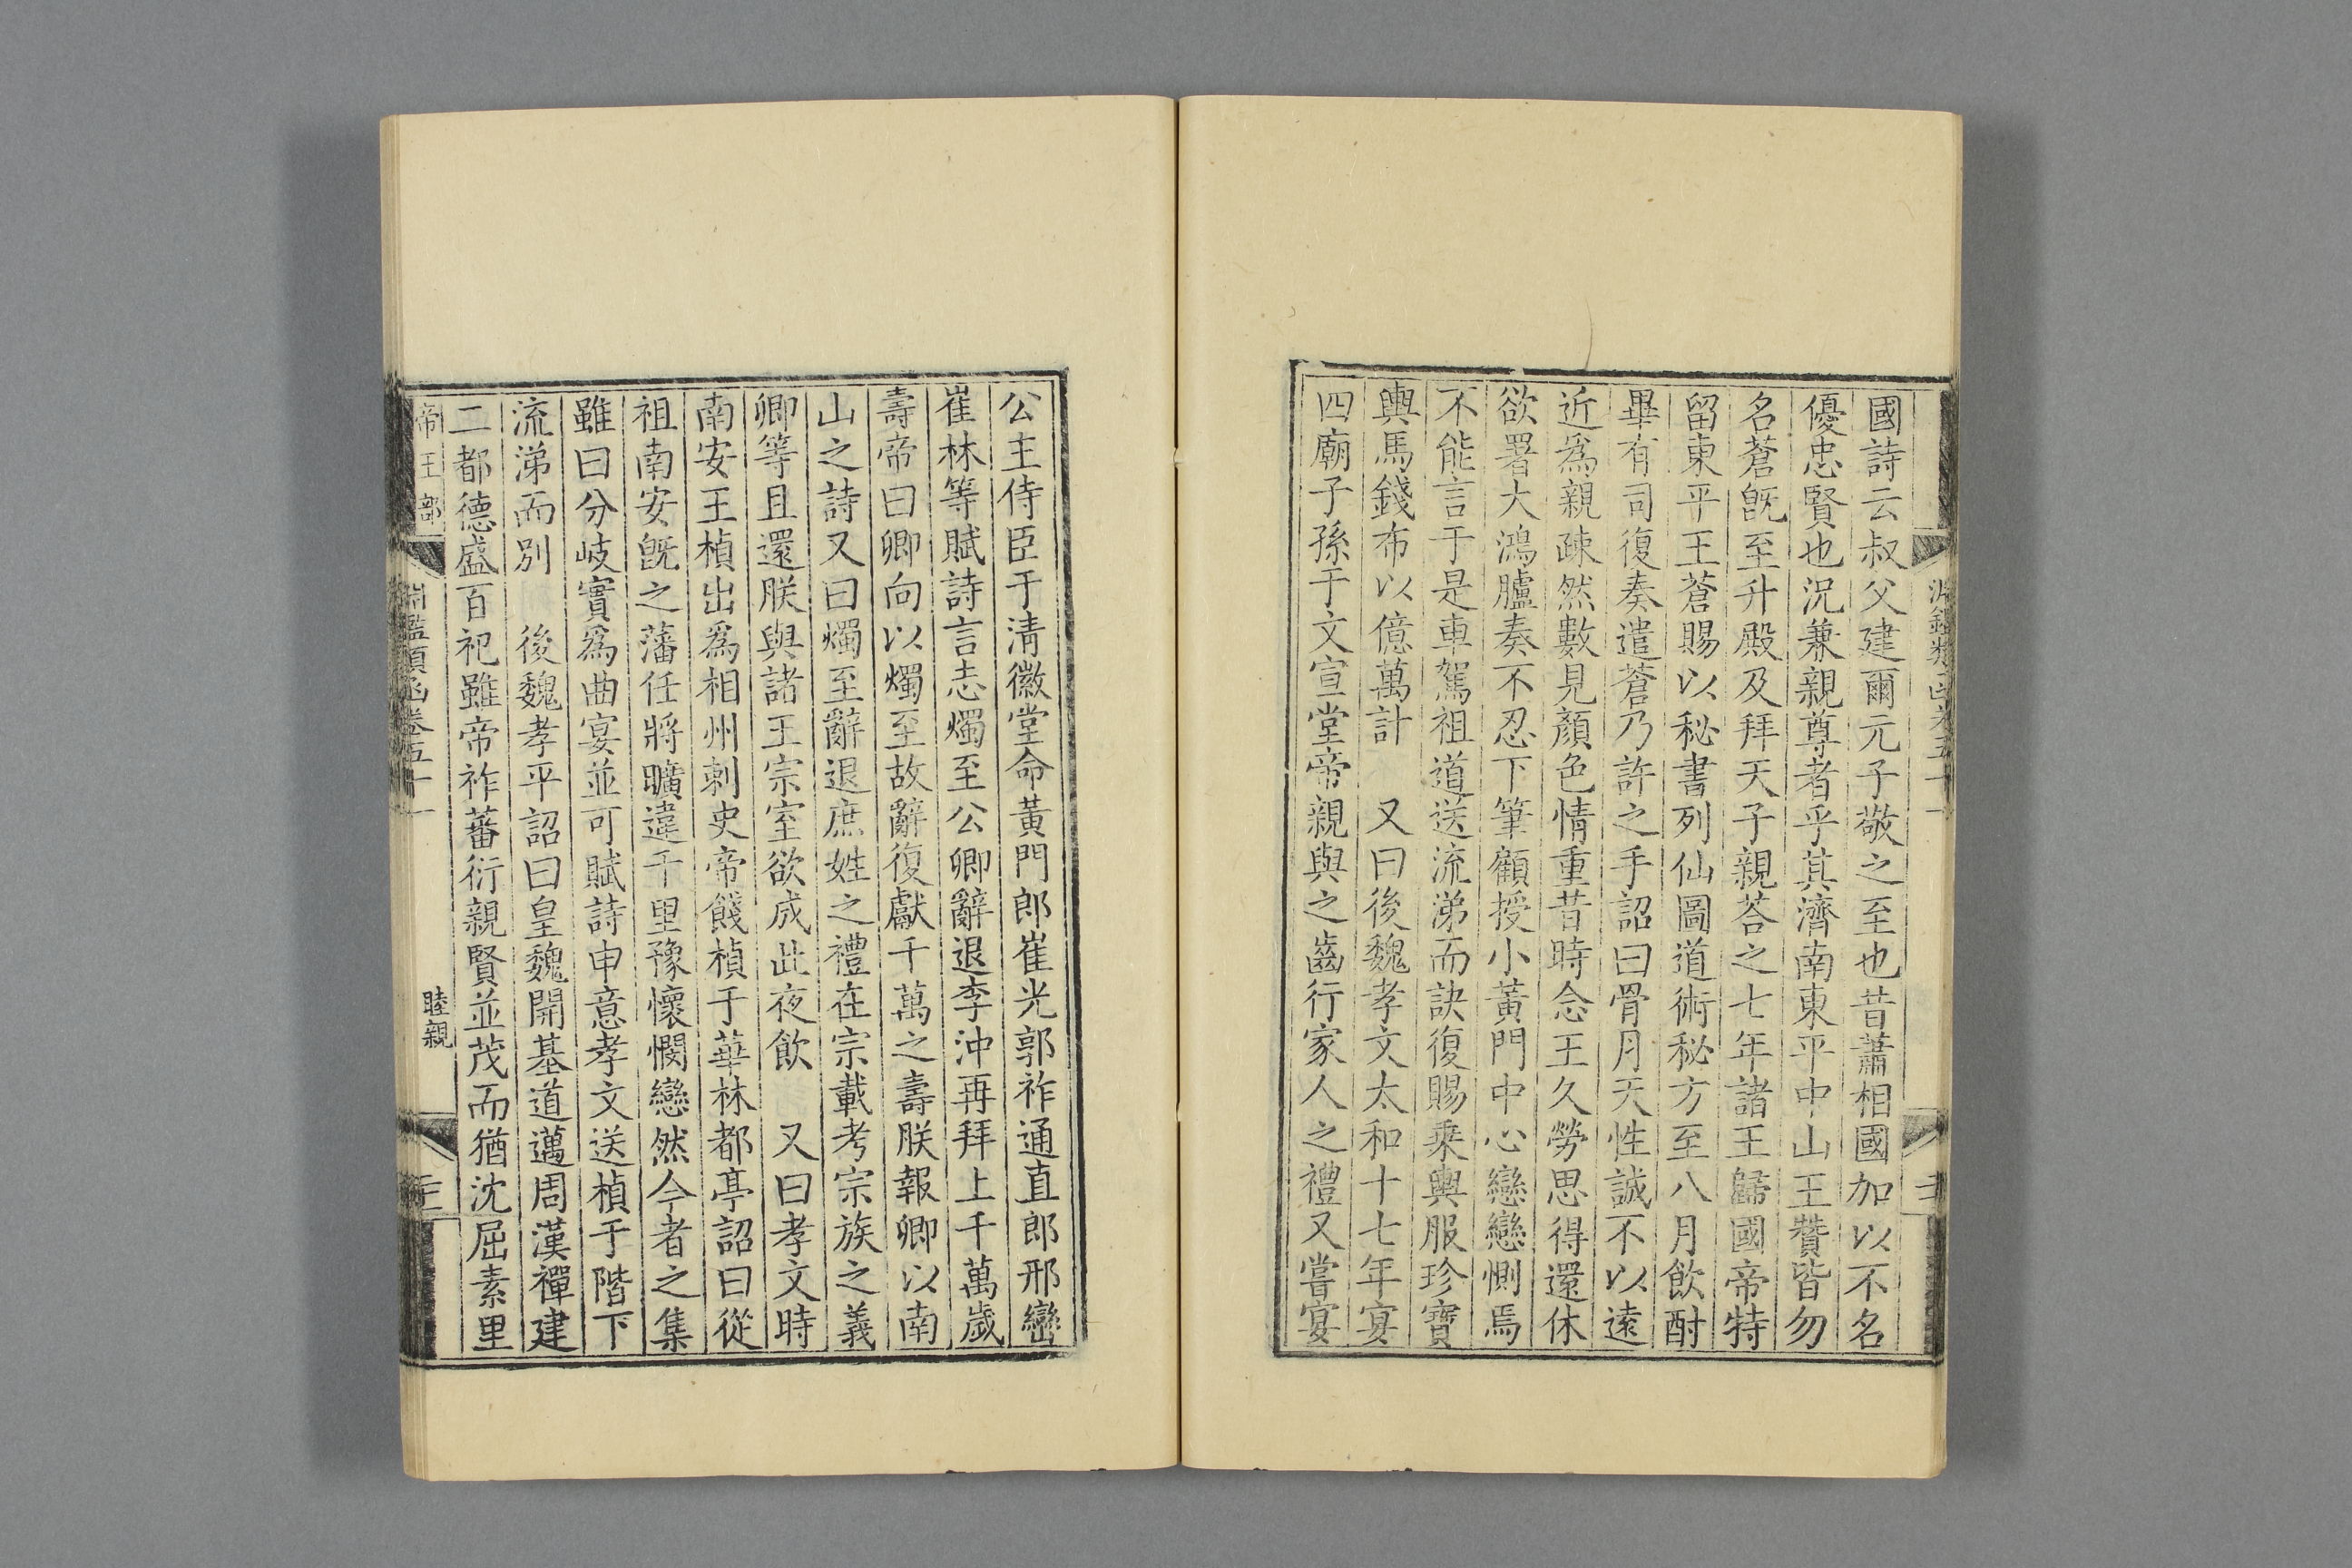 國詩云叔父建爾元子敬之至也昔蕭相國加以不名
優忠賢也況兼親尊者乎其濟南東平中山王贊皆勿
名蒼旣至升殿及拜天子親荅之七年諸王歸國帝特
留東平王蒼賜以秘書列仙圖道術秘方至八月飲酎
畢有司復奏遣蒼乃許之手詔曰骨月天性誠不以遠
近爲親疎然數見顏色情重昔時念王久勞思得還休
欲署大鴻臚奏不忍下筆顧授小黃門中心戀戀惻焉
不能言于是車駕祖道送流涕而訣復賜乘輿服珍寶
輿馬錢布以億萬計　又曰後魏孝文太和十七年宴
四廟子孫于文宣堂帝親與之齒行家人之禮又嘗宴
公主侍臣于淸徽堂命黃門郎崔光郭祚通直郎邢巒
崔林等賦詩言志燭至公卿辭退李沖再拜上千萬歲
壽帝曰卿向以燭至故辭復獻千萬之壽朕報卿以南
山之詩又曰燭至辭退庶姓之禮在宗載考宗族之義
卿等且還朕與諸王宗室欲成此夜飮　又曰孝文時
南安王楨出爲相州刺史帝餞楨于華林都亭詔曰從
祖南安旣之藩任將曠違千里豫懷憫戀然今者之集
雖曰分岐實爲曲宴並可賦詩申意孝文送楨于階下
流涕而別　後魏孝平詔曰皇魏開基道邁周漢禪建
二都德盛百祀雖帝祚蕃衍親賢並茂而猶沈屈素里
帝王部
淵鑑類函卷五十一
睦親